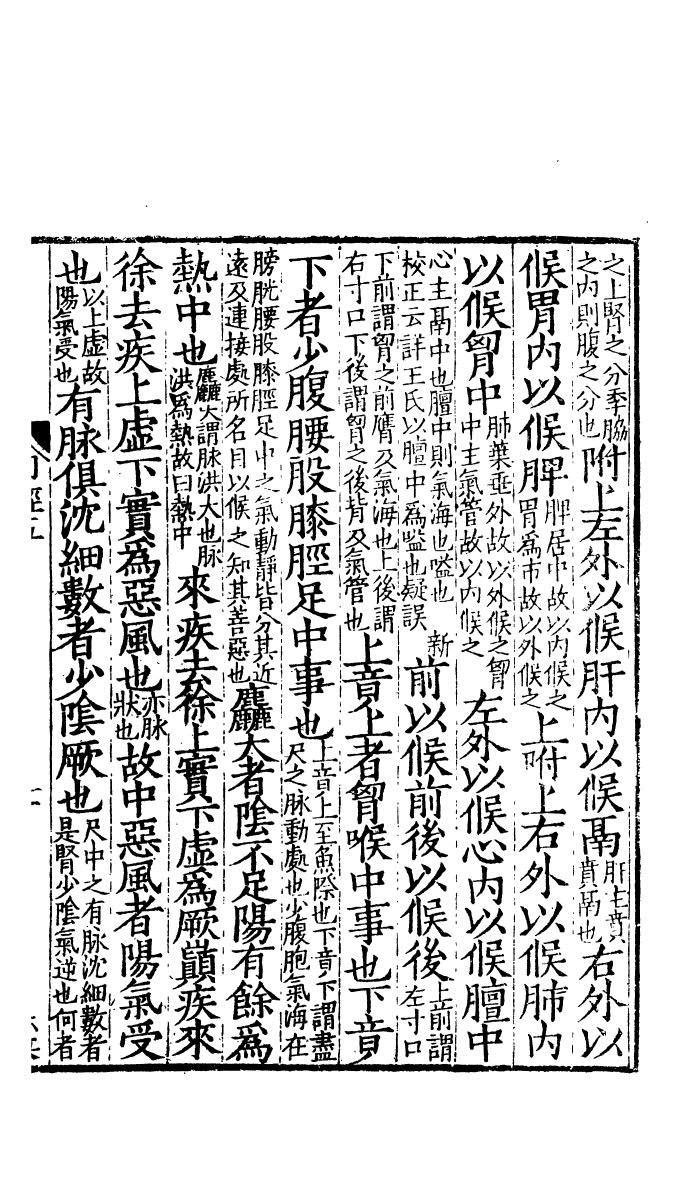 之上腎之分季脇之内則腹之分也附上左外以候肝内以候鬲肝主賁賁鬲也右外以
候胃内以候脾脾居中故以内候之胃爲市故以外候之上附上右外以候肺内
以候胷中肺葉垂外故以外候之胷中主氣管故以内候之左外以候心内以候膻中
心主鬲中也膻中則氣海也嗌也新校正云詳王氏以膻中爲嗌也疑誤前以候前後以候後上前謂左寸口
下前謂胷之前膺及氣海也上後謂右寸口下後謂胷之後背及氣管也上竟上者胷喉中事也下竟
下者少腹腰股膝脛足中事也上竟上至魚際也下竟下謂盡尺之脉動處也少腹胞氣海在
膀胱腰股膝脛足中之氣動靜皆分其近遠及連接處所名目以候之知其善惡也麤大者陰不足陽有餘爲
熱中也麤大謂脉洪大也脉洪爲熱故曰熱中來疾去徐上實下虛爲厥巔疾來
徐去疾上虛下實爲惡風也亦脉狀也故中惡風者陽氣受
也以上虛故陽氣受也有脉俱沈細數者少陰厥也尺中之有脉沈細數者是腎少陰氣逆也何者